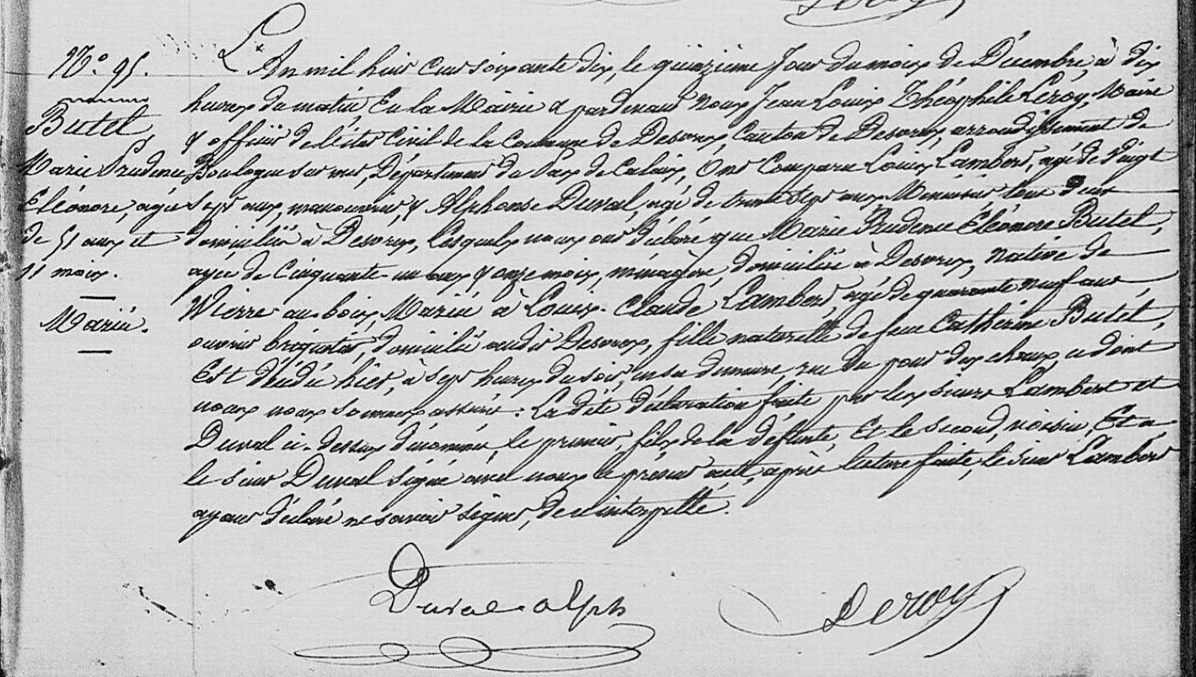 N.° 95.
Butel,
Marie Prudence
Eléonore, agée
de 51 ans et
11 mois.
Mariée.
L'An mil huit cent soixante dix, le quinzième Jour du mois de Décembre, à dix
heures du matin, En la Mairie & pardevant Nous Jean Louis Théophile Leroy, Maire
& officier de l'état Civil de la Commune de Desvres, Canton de Desvres, arrondissement de
Boulogne sur mer, Département du Pas de Calais, Ont Comparu Louis Lambert, agé de vingt
sept ans, manouvrier, & Alphonse Duval, agé de trente sept ans Menuisier, tous deux
domiciliés à Desvres, lesquels nous ont déclaré que Marie Prudence Eléonore Butel,
agée de Cinquante un ans & onze mois, ménagère domiciliée à Desvres, native de
Wierre au bois Mariée à Louis Claude Lambert, agé de quarante neuf ans
ouvrier briquetier, domicilié audit Desvres, fille naturelle de feue Catherine Butel,
Est décédée hier, à sept heures du soir, en sa demeure, rue du four des chaux, ce dont
nous nous sommes assuré. La dite déclaration faite par les sieurs Lambert et
Duval ci-dessus dénommés, le premier, fils de la défunte, Et le second, voisin, Et a
le sieur Duval signé avec nous le présent acte, après lecture faite, le sieur Lambert
ayant déclaré ne savoir signer, de ce interpellé.
Duval alph
Leroy